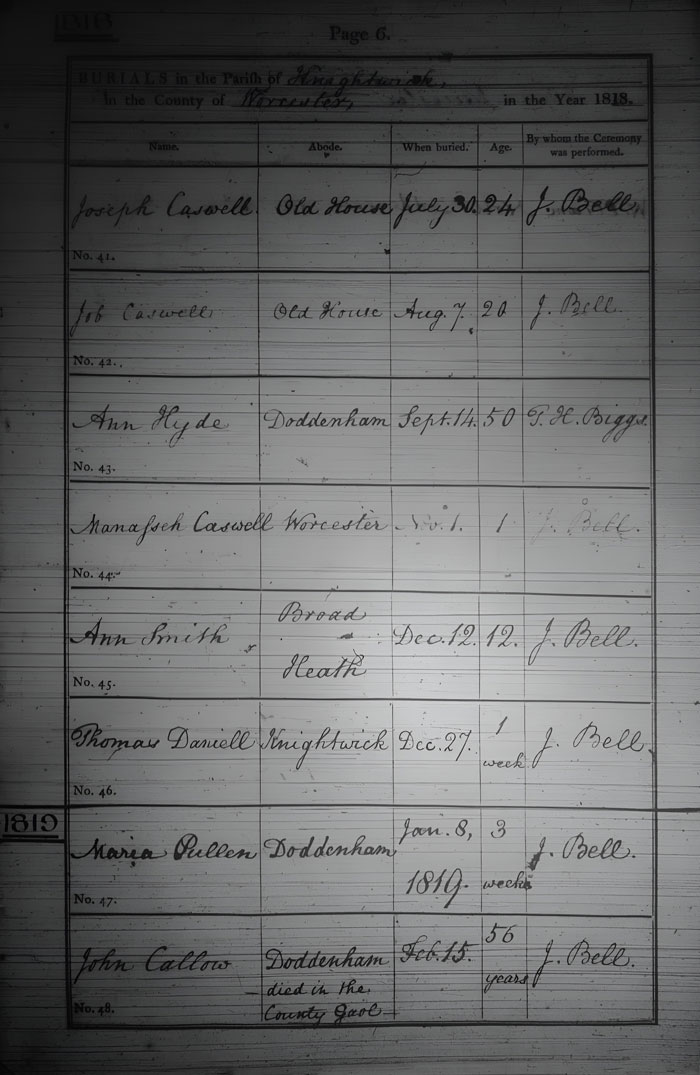 1818
Page 6.
BURIALS in the Parish of Knightwick,
in the County of Worcester, in the Year 1818.
Name. Abode. When buried. Age. By whom the Ceremony was performed.
Joseph Caswell Old House July 30. 24 J. Bell.
No. 41.
Job Caswell Old House Aug. 7. 20 J. Bell
No. 42.
Ann Hyde Doddenham Sept. 14. 50 T. H. Biggs.
No. 43.
Manafseh Caswell Worcester Nov. 1. 1 J. Bell.
No. 44.
Ann Smith Broad Heath Dec. 12. 12. J. Bell.
No. 45.
Thomas Daniell Knightwick Dec. 27. 1 week J. Bell.
No. 46.
1819
Maria Pullen Doddenham Jan. 8, 1819. 3 weeks J. Bell.
No. 47.
John Callow Doddenham Feb. 15. 56 years J. Bell.
died in the
No. 48. County Gaol